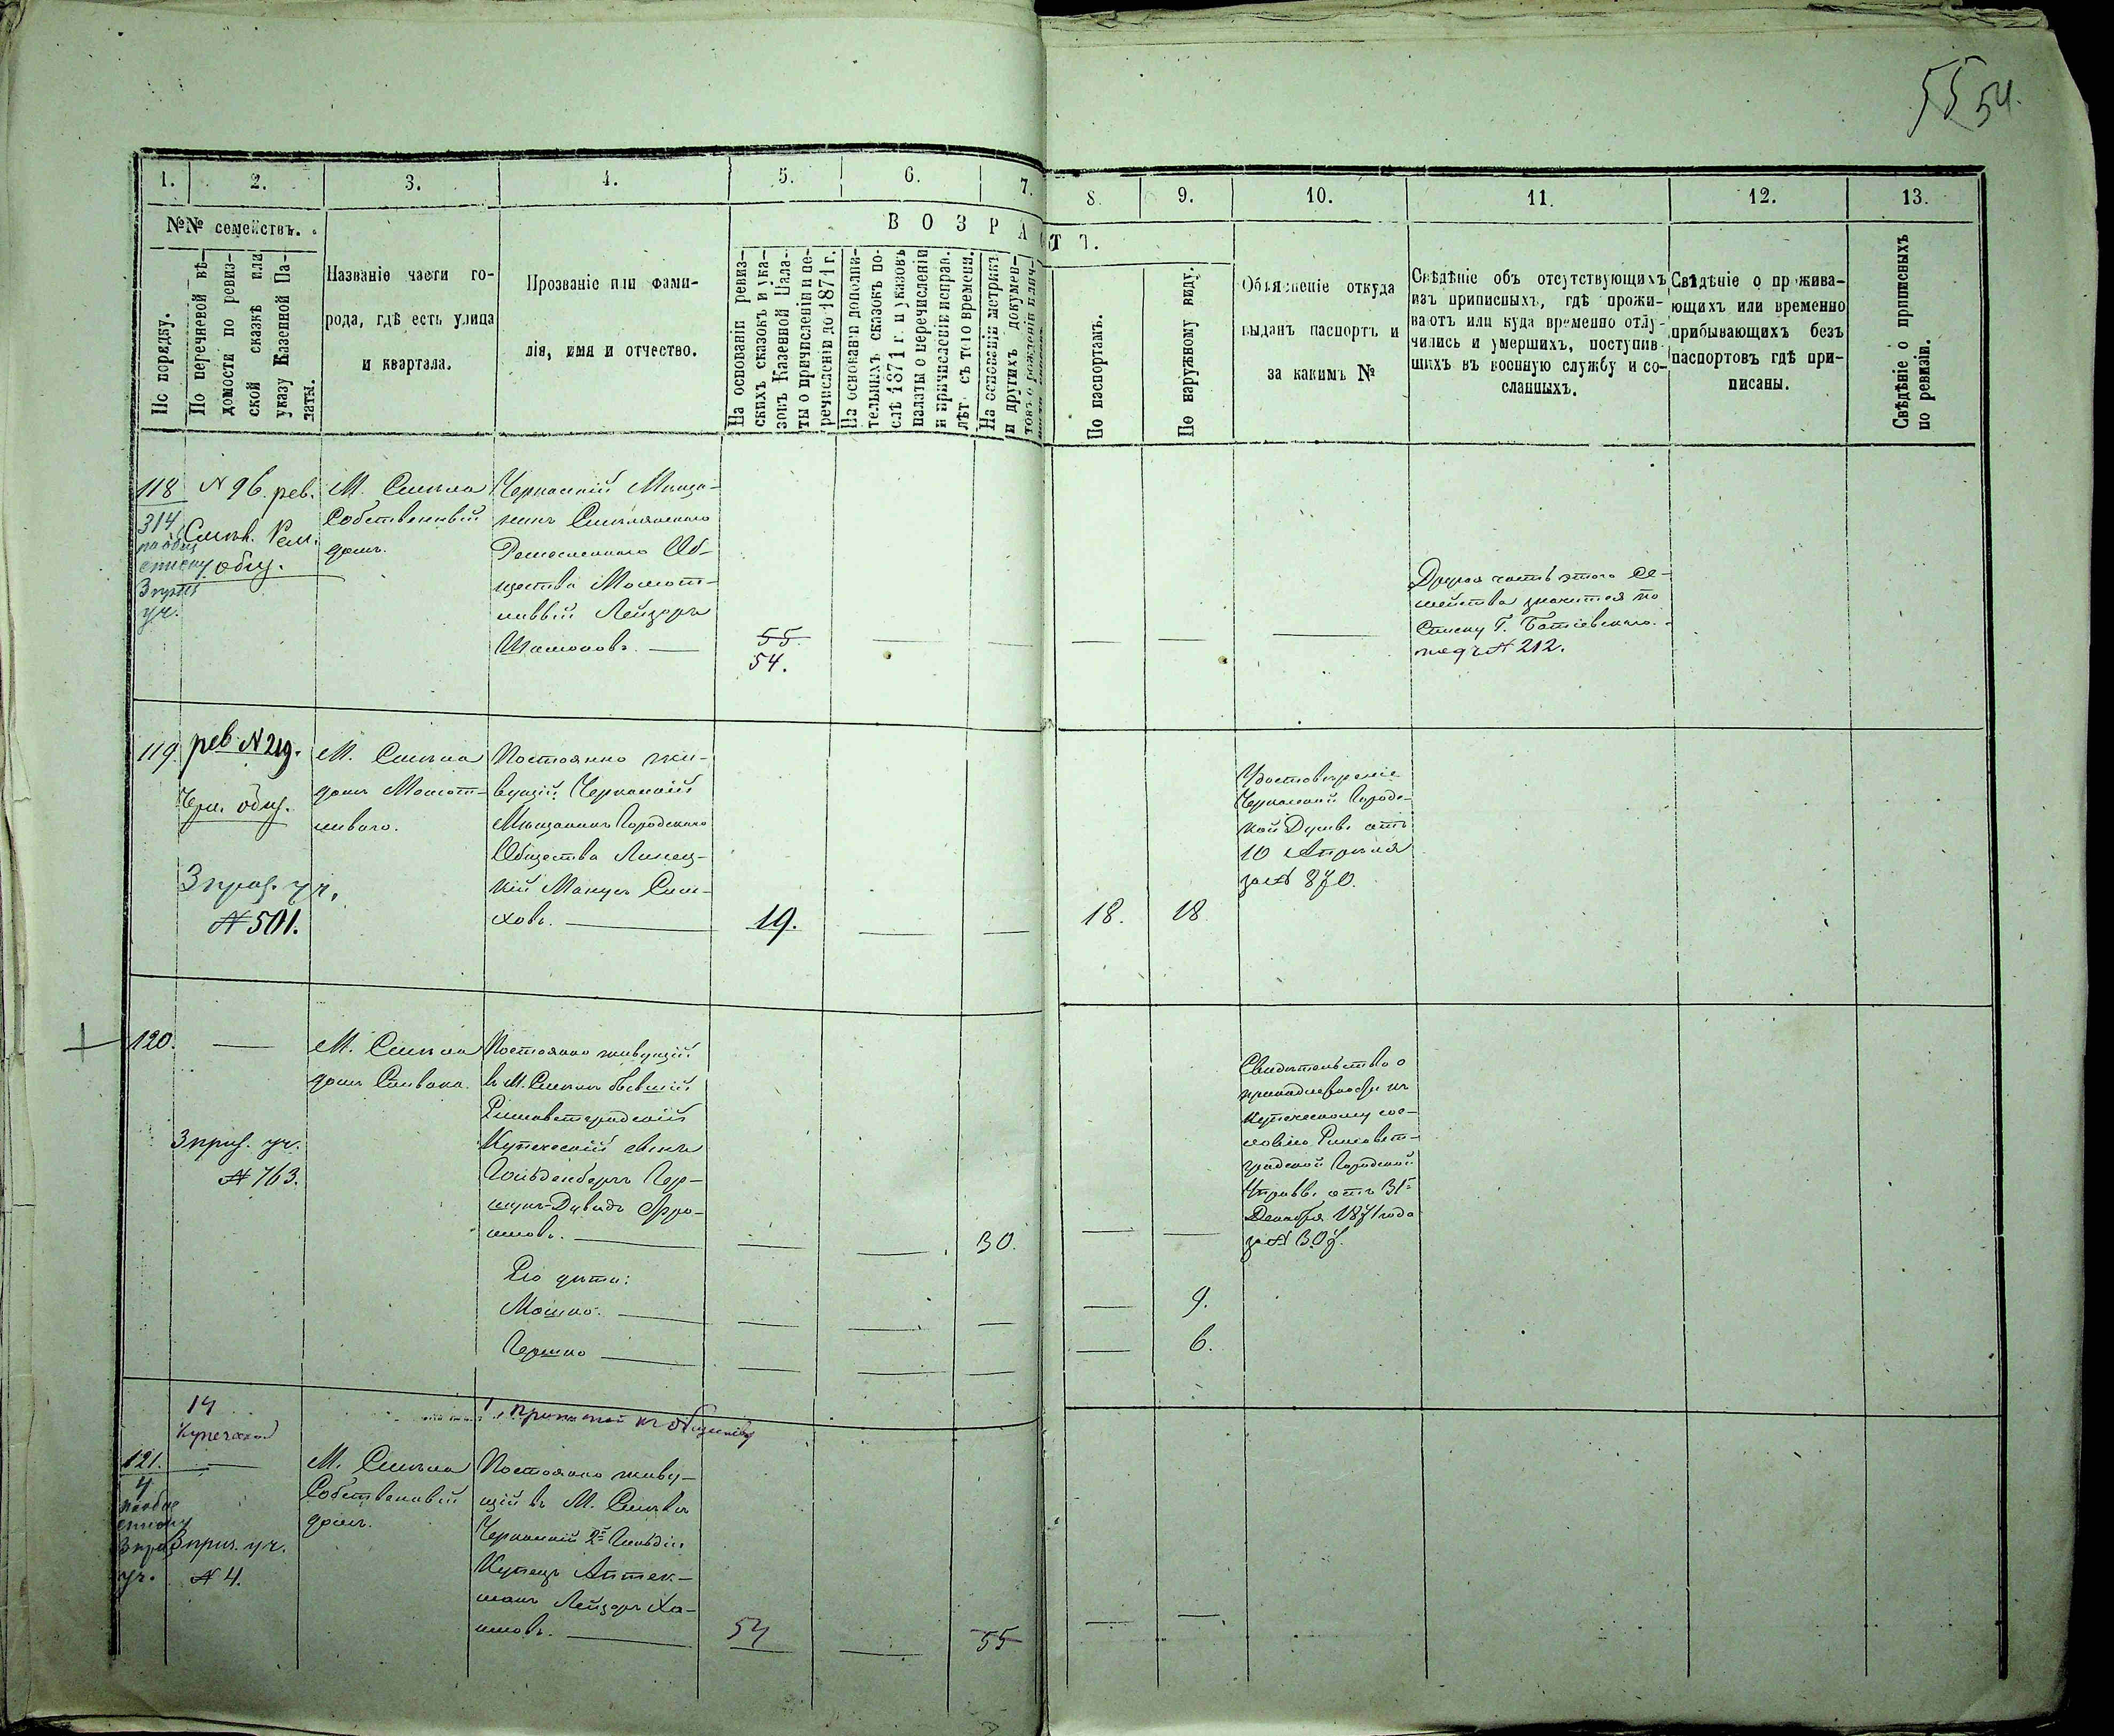 55 54.
1. 2. 3. 4. 5. 6. 7. 8. 9. 10. 11. 12. 13.
№№ семействъ.
По порядку.
По перечневой вѣ-
домости по ревиз-
ской сказкѣ или
указу Казенной Па-
латы.
Названіе части го-
рода, гдѣ есть улица
и квартала.
Прозваніе или фами-
лія, имя и отчество.
ВОЗРАСТЪ.
На основаніи ревиз-
скихъ сказокъ и ука-
зовъ Казенной Пала-
ты о причисленіи и пе-
речисленіи до 1871 г.
На основаніи дополни-
тельныхъ сказокъ по-
слѣ 1871 г. и указовъ
палаты о перечисленіи
и причисленіе исправ.
лѣт съ того времени.
На основаніи метрик.
и другихъ докумен-
товъ о рожденіи
По паспортамъ.
По наружному виду.
Объясненіе откуда
выданъ паспортъ и
за какимъ №
Свѣдѣніе объ отсутствующихъ
изъ приписныхъ, гдѣ прожи-
ваютъ или куда временно отлу-
чились и умершихъ, поступив-
шихъ въ военную службу и со-
сланныхъ.
Свѣдѣніе о прожива-
ющихъ или временно
прибывающихъ безъ
паспортовъ гдѣ при-
писаны.
Свѣдѣніе о приписныхъ
по ревизіи.
118
314
по общ
списку
3 приз
уч.
№ 96. рев.
Смѣл. Рем.
общ.
М. Смѣла
Собственный
домъ.
Черкаскій Мѣща-
нинъ Смѣлянского
Ремесленного Об-
щества Мокот-
ливый Лейзоръ
Шамоновъ.
55.
54.
Другая часть этого се-
мейства значится по
списку Г. Батіевского
подъ № 212.
119.
рев № 219.
Чер. общ.
3 приз. уч.
№ 501.
М. Смѣла
домъ Мокот-
ливаго.
Постоянно жи-
вущій Черкаскій
Мѣщанинъ Городского
Общества Линец-
кій Манусъ Сим-
ховъ.
19.
18.
18
Удостовѣреніе
Черкаской Городс-
кой Думы отъ
10 Апрѣля
за № 870.
120.
3 приз. уч.
№ 763.
М. Смѣла
домъ Спивака.
Постоянно живущій
в М. Смѣлѣ бывшій
Елисаветградскій
Купеческій сынъ
Гольденбергъ Гер-
шунъ-Давидъ Фро-
имовъ.
30.
Его дѣти:
Мошко.
9.
Гершко
6.
Свидѣтельство о
принадлежности къ
Купеческому сос-
ловію Елисавет-
градской Городской
Управы отъ 31го
Декабря 1871 года
за № 307.
14
Купеческ
припис къ обществу
121.
4
по общ
списку
3 приз
уч.
3 приз. уч.
№ 4.
М. Смѣла
Собственный
домъ.
Постоянно живу-
щій въ М. Смѣлѣ
Черкаскій 2й Гильдіи
Купецъ Аптек-
манъ Лейзоръ Ха-
имовъ.
54
55